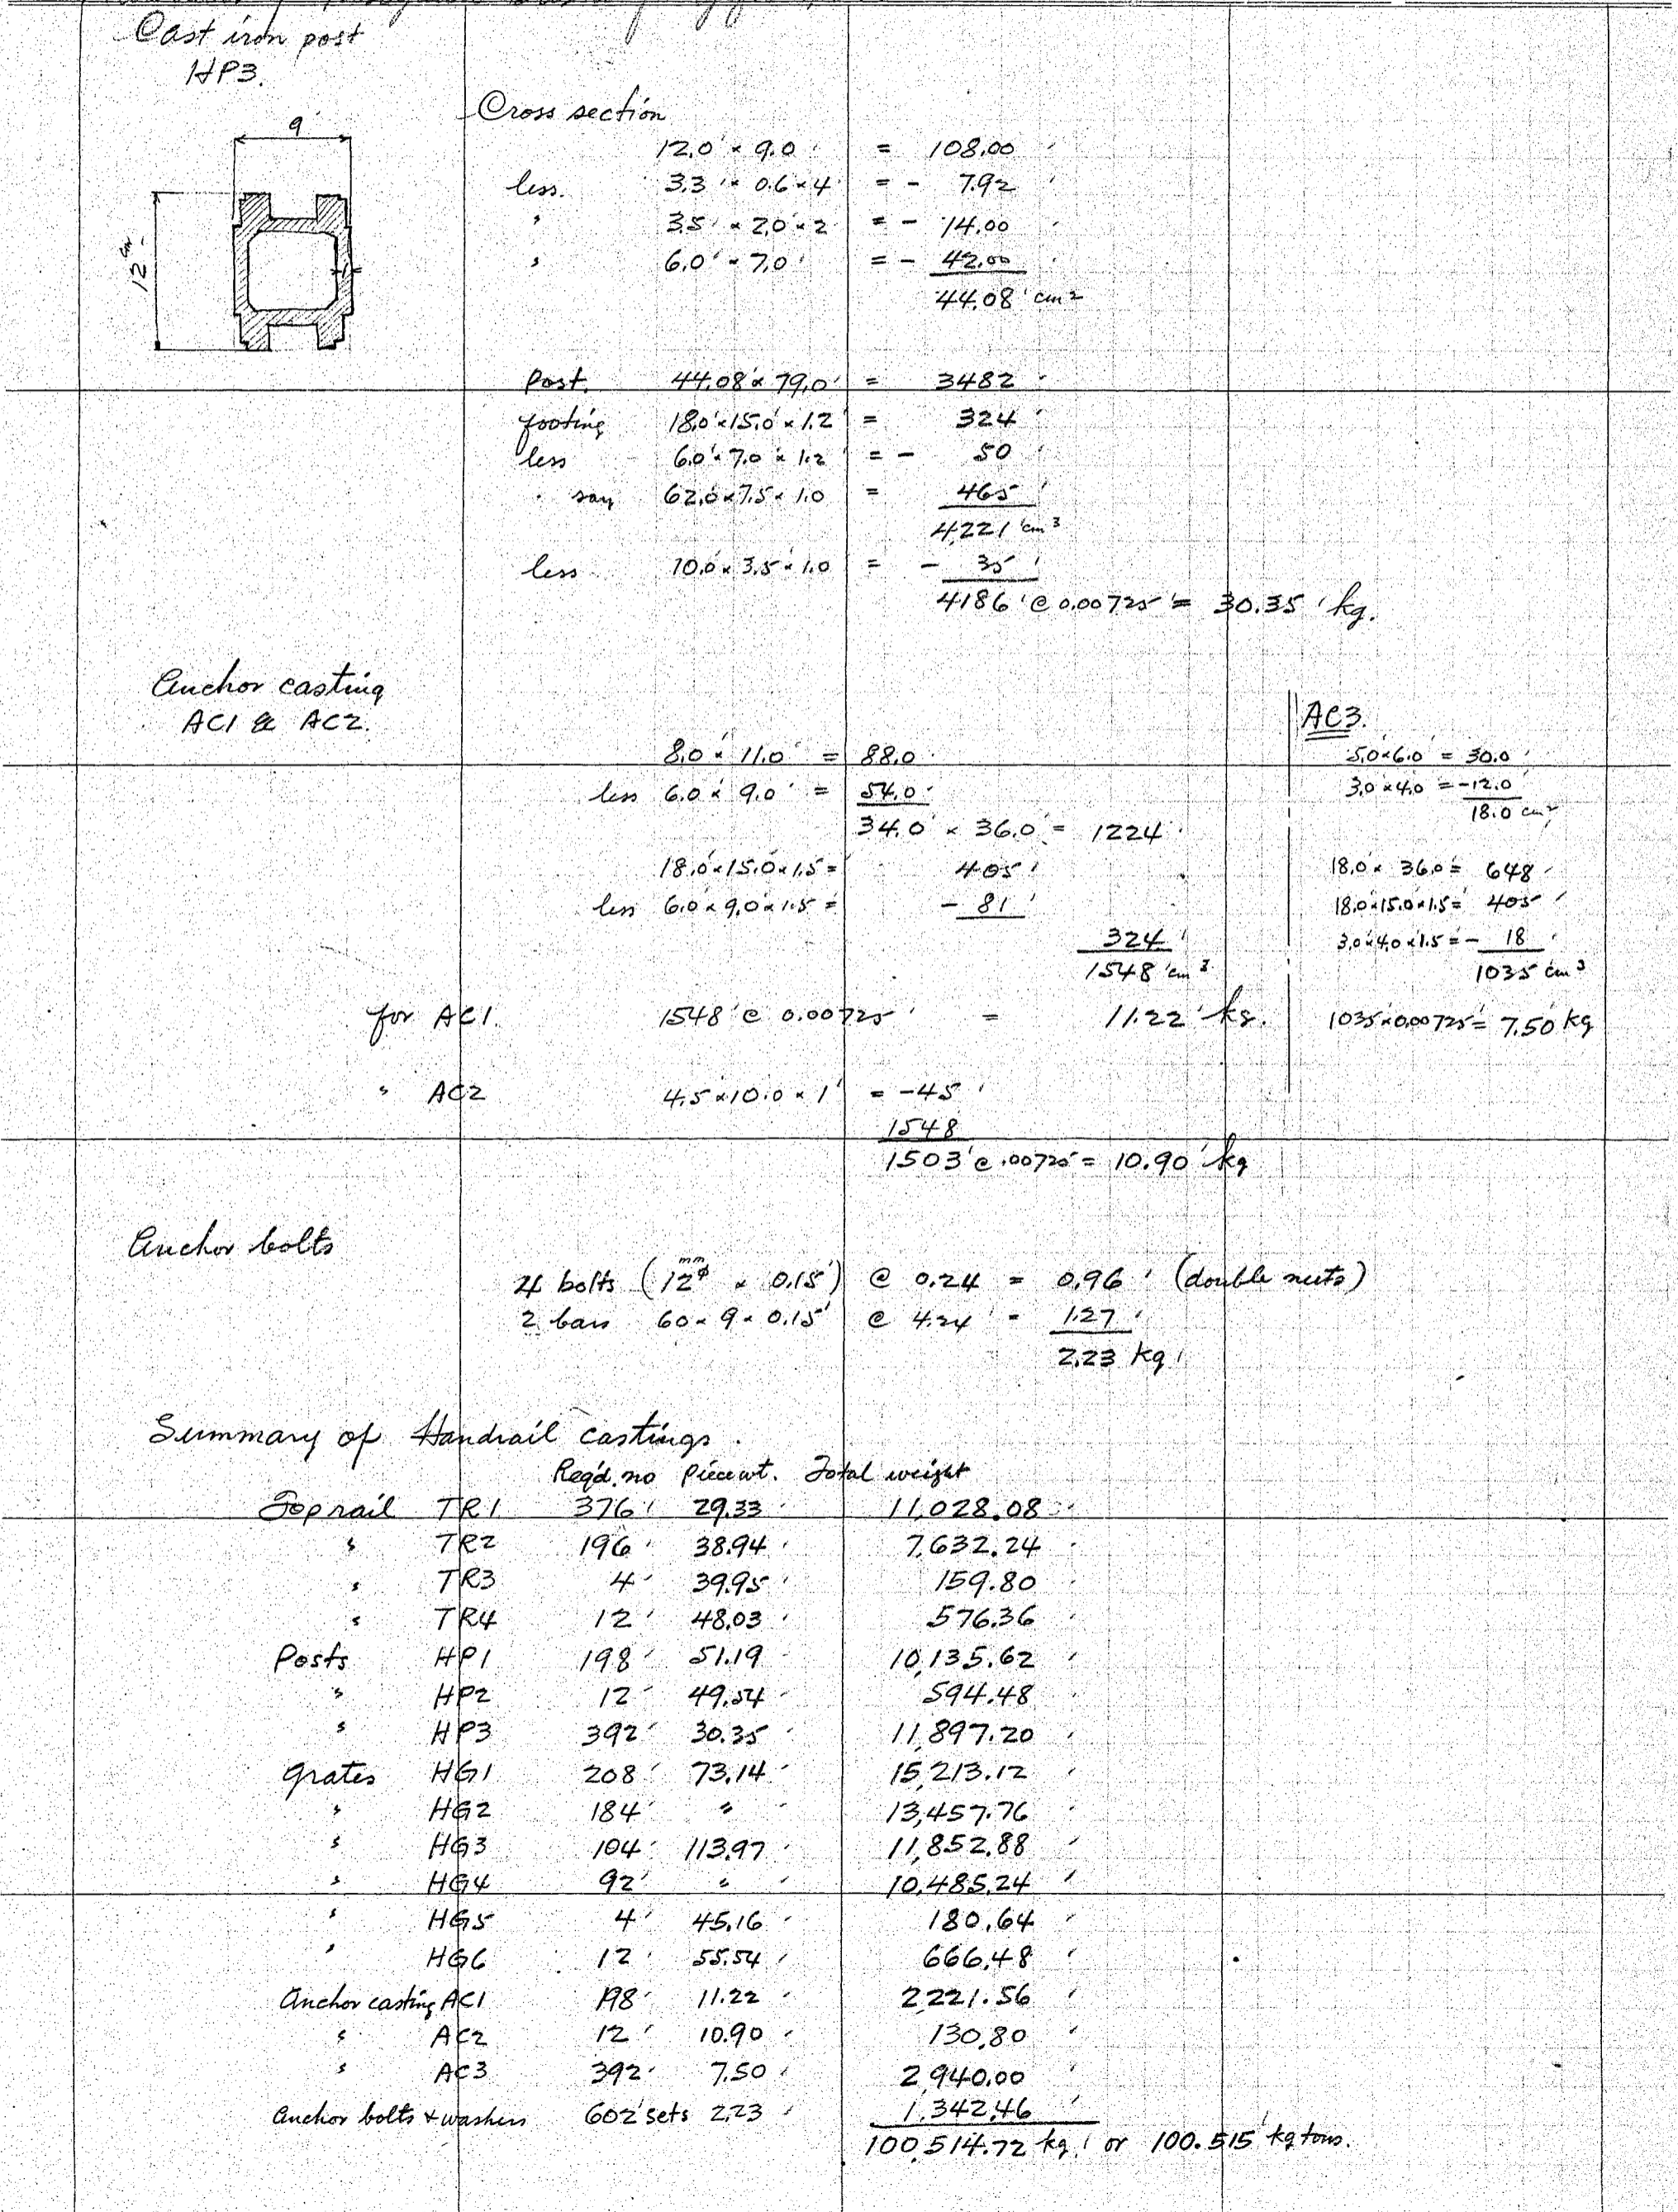 Cast iron post
HP3.
Cross section
9
12 cm
12.0 × 9.0 = 108.00
less. 3.3 × 0.6 × 4 = - 7.92
" 3.5 × 2.0 × 2 = - 14.00
" 6.0 × 7.0 = - 42.00
44.08 cm²
Post. 44.08 × 79.0 = 3482
footing 18.0 × 15.0 × 1.2 = 324
less 6.0 × 7.0 × 1.2 = - 50
" say 62.0 × 7.5 × 1.0 = 465
4,221 cm³
less 10.0 × 3.5 × 1.0 = - 35
4186 @ 0.00725 = 30.35 kg.
Anchor casting
AC1 & AC2.
8.0 × 11.0 = 88.0
less 6.0 × 9.0 = 54.0
34.0 × 36.0 = 1224
18.0 × 15.0 × 1.5 = 405
less 6.0 × 9.0 × 1.5 = - 81
324
1548 cm³
for AC1. 1548 @ 0.00725 = 11.22 kg.
" AC2 4.5 × 10.0 × 1 = -45
1548
1503 @ .00725 = 10.90 kg
AC3.
5.0 × 6.0 = 30.0
3.0 × 4.0 = -12.0
18.0 cm²
18.0 × 36.0 = 648
18.0 × 15.0 × 1.5 = 405
3.0 × 4.0 × 1.5 = - 18
1035 cm³
1035 × 0.00725 = 7.50 kg
Anchor bolts
4 bolts (12 mm φ × 0.15) @ 0.24 = 0.96 (double nuts)
2 bars 60 × 9 × 0.15 @ 4.24 = 1.27
2.23 kg
Summary of Handrail castings.
Req'd. no Piece wt. Total weight
Top rail TR1 376 29.33 11,028.08
" TR2 196 38.94 7,632.24
" TR3 4 39.95 159.80
" TR4 12 48.03 576.36
Posts HP1 198 51.19 10,135.62
" HP2 12 49.54 594.48
" HP3 392 30.35 11,897.20
Grates HG1 208 73.14 15,213.12
" HG2 184 " 13,457.76
" HG3 104 113.97 11,852.88
" HG4 92 " 10,485.24
" HG5 4 45.16 180.64
" HG6 12 55.54 666.48
Anchor casting AC1 198 11.22 2,221.56
" AC2 12 10.90 130.80
" AC3 392 7.50 2,940.00
Anchor bolts + washers 602 sets 2.23 1,342.46
100,514.72 kg. or 100.515 kg tons.